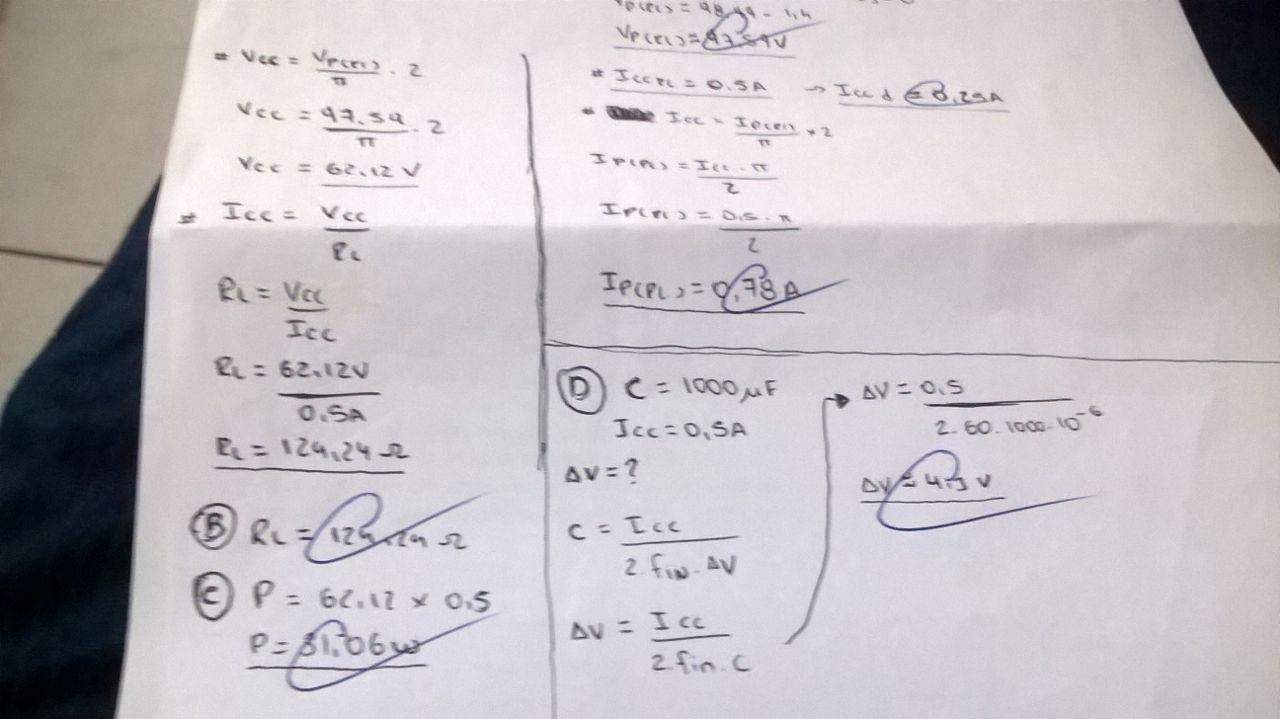 * Vcc = VP(RL) / π . 2
Vcc = 97.59 / π . 2
Vcc = 62.12 V
* Icc = Vcc / RL
RL = Vcc / Icc
RL = 62.12V / 0.5A
RL = 124,24 Ω
B RL = 124,24 Ω
C P = 62.12 × 0.5
P = 31,06 W
VP(RL) = 98,99 - 1,4
VP(RL) = 97,59V
* Icc RL = 0.5A → Icc d = 0,25A
* Icc = IP(RL) / π × 2
IP(RL) = Icc . π / 2
IP(RL) = 0.5 . π / 2
IP(RL) = 0,78 A
D C = 1000 μF
Icc = 0,5A
ΔV = ?
C = Icc / 2 . fin . ΔV
ΔV = Icc / 2 fin . C
ΔV = 0,5 / 2 . 60 . 1000 . 10⁻⁶
ΔV = 4,1 V